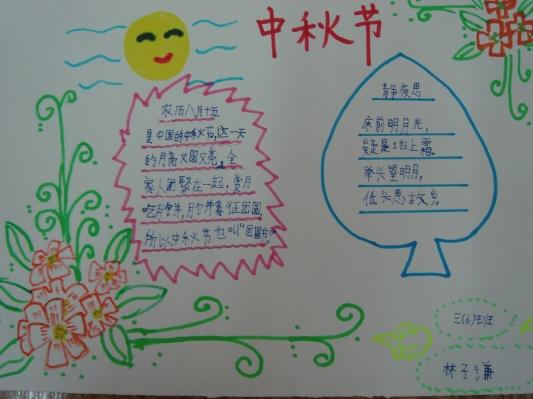 中秋节
农历八月十五
是中国的中秋节,这一天
的月亮又圆又亮,全
家人团聚在一起,赏月
吃月饼,月饼象征团圆,
所以中秋节也叫“团圆节”
静夜思
床前明月光,
疑是地上霜。
举头望明月,
低头思故乡。
三(6)班
林子谦